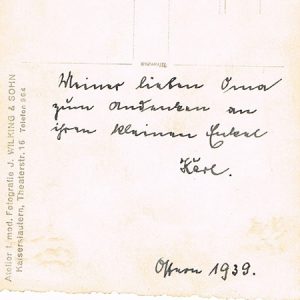 Meiner lieben Oma
zum Andenken an
ihren kleinen Enkel
Karl.
Ostern 1939.
Atelier f. mod. Fotografie J. WILKING & SOHN
Kaiserslautern, Theaterstr. 16 Telefon 964